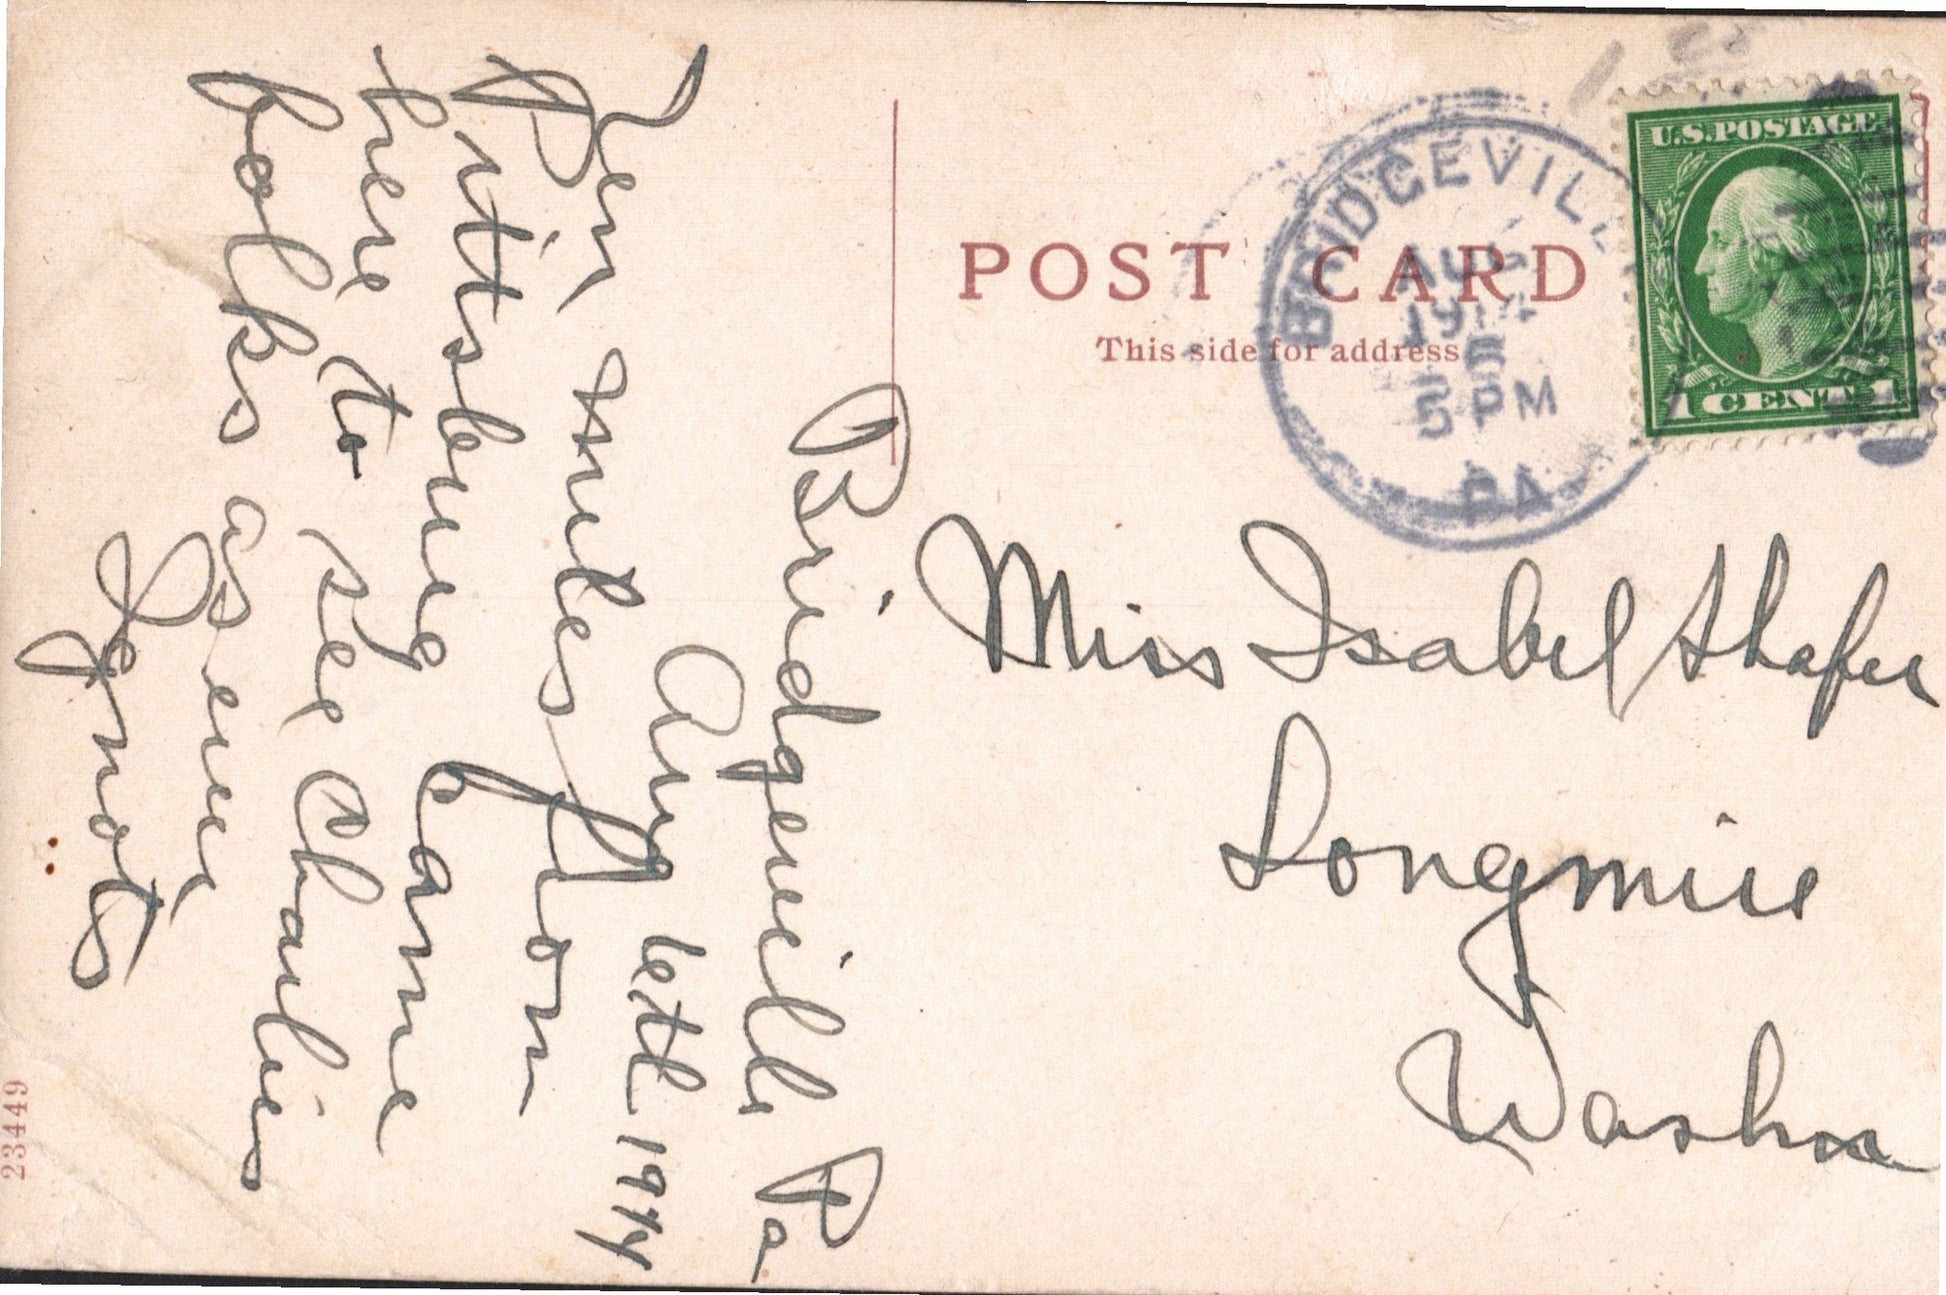 POST CARD
This side for address
BRIDGEVILLE
AUG
1914
5 PM
PA.
U.S. POSTAGE
1 CENT 1
Miss Isabel Shafer
Longmire
Washn
Bridgeville Pa
Aug 6th 1914
Ten miles from
Pittsburg Came
here to see Charlie
folks as ever
23449